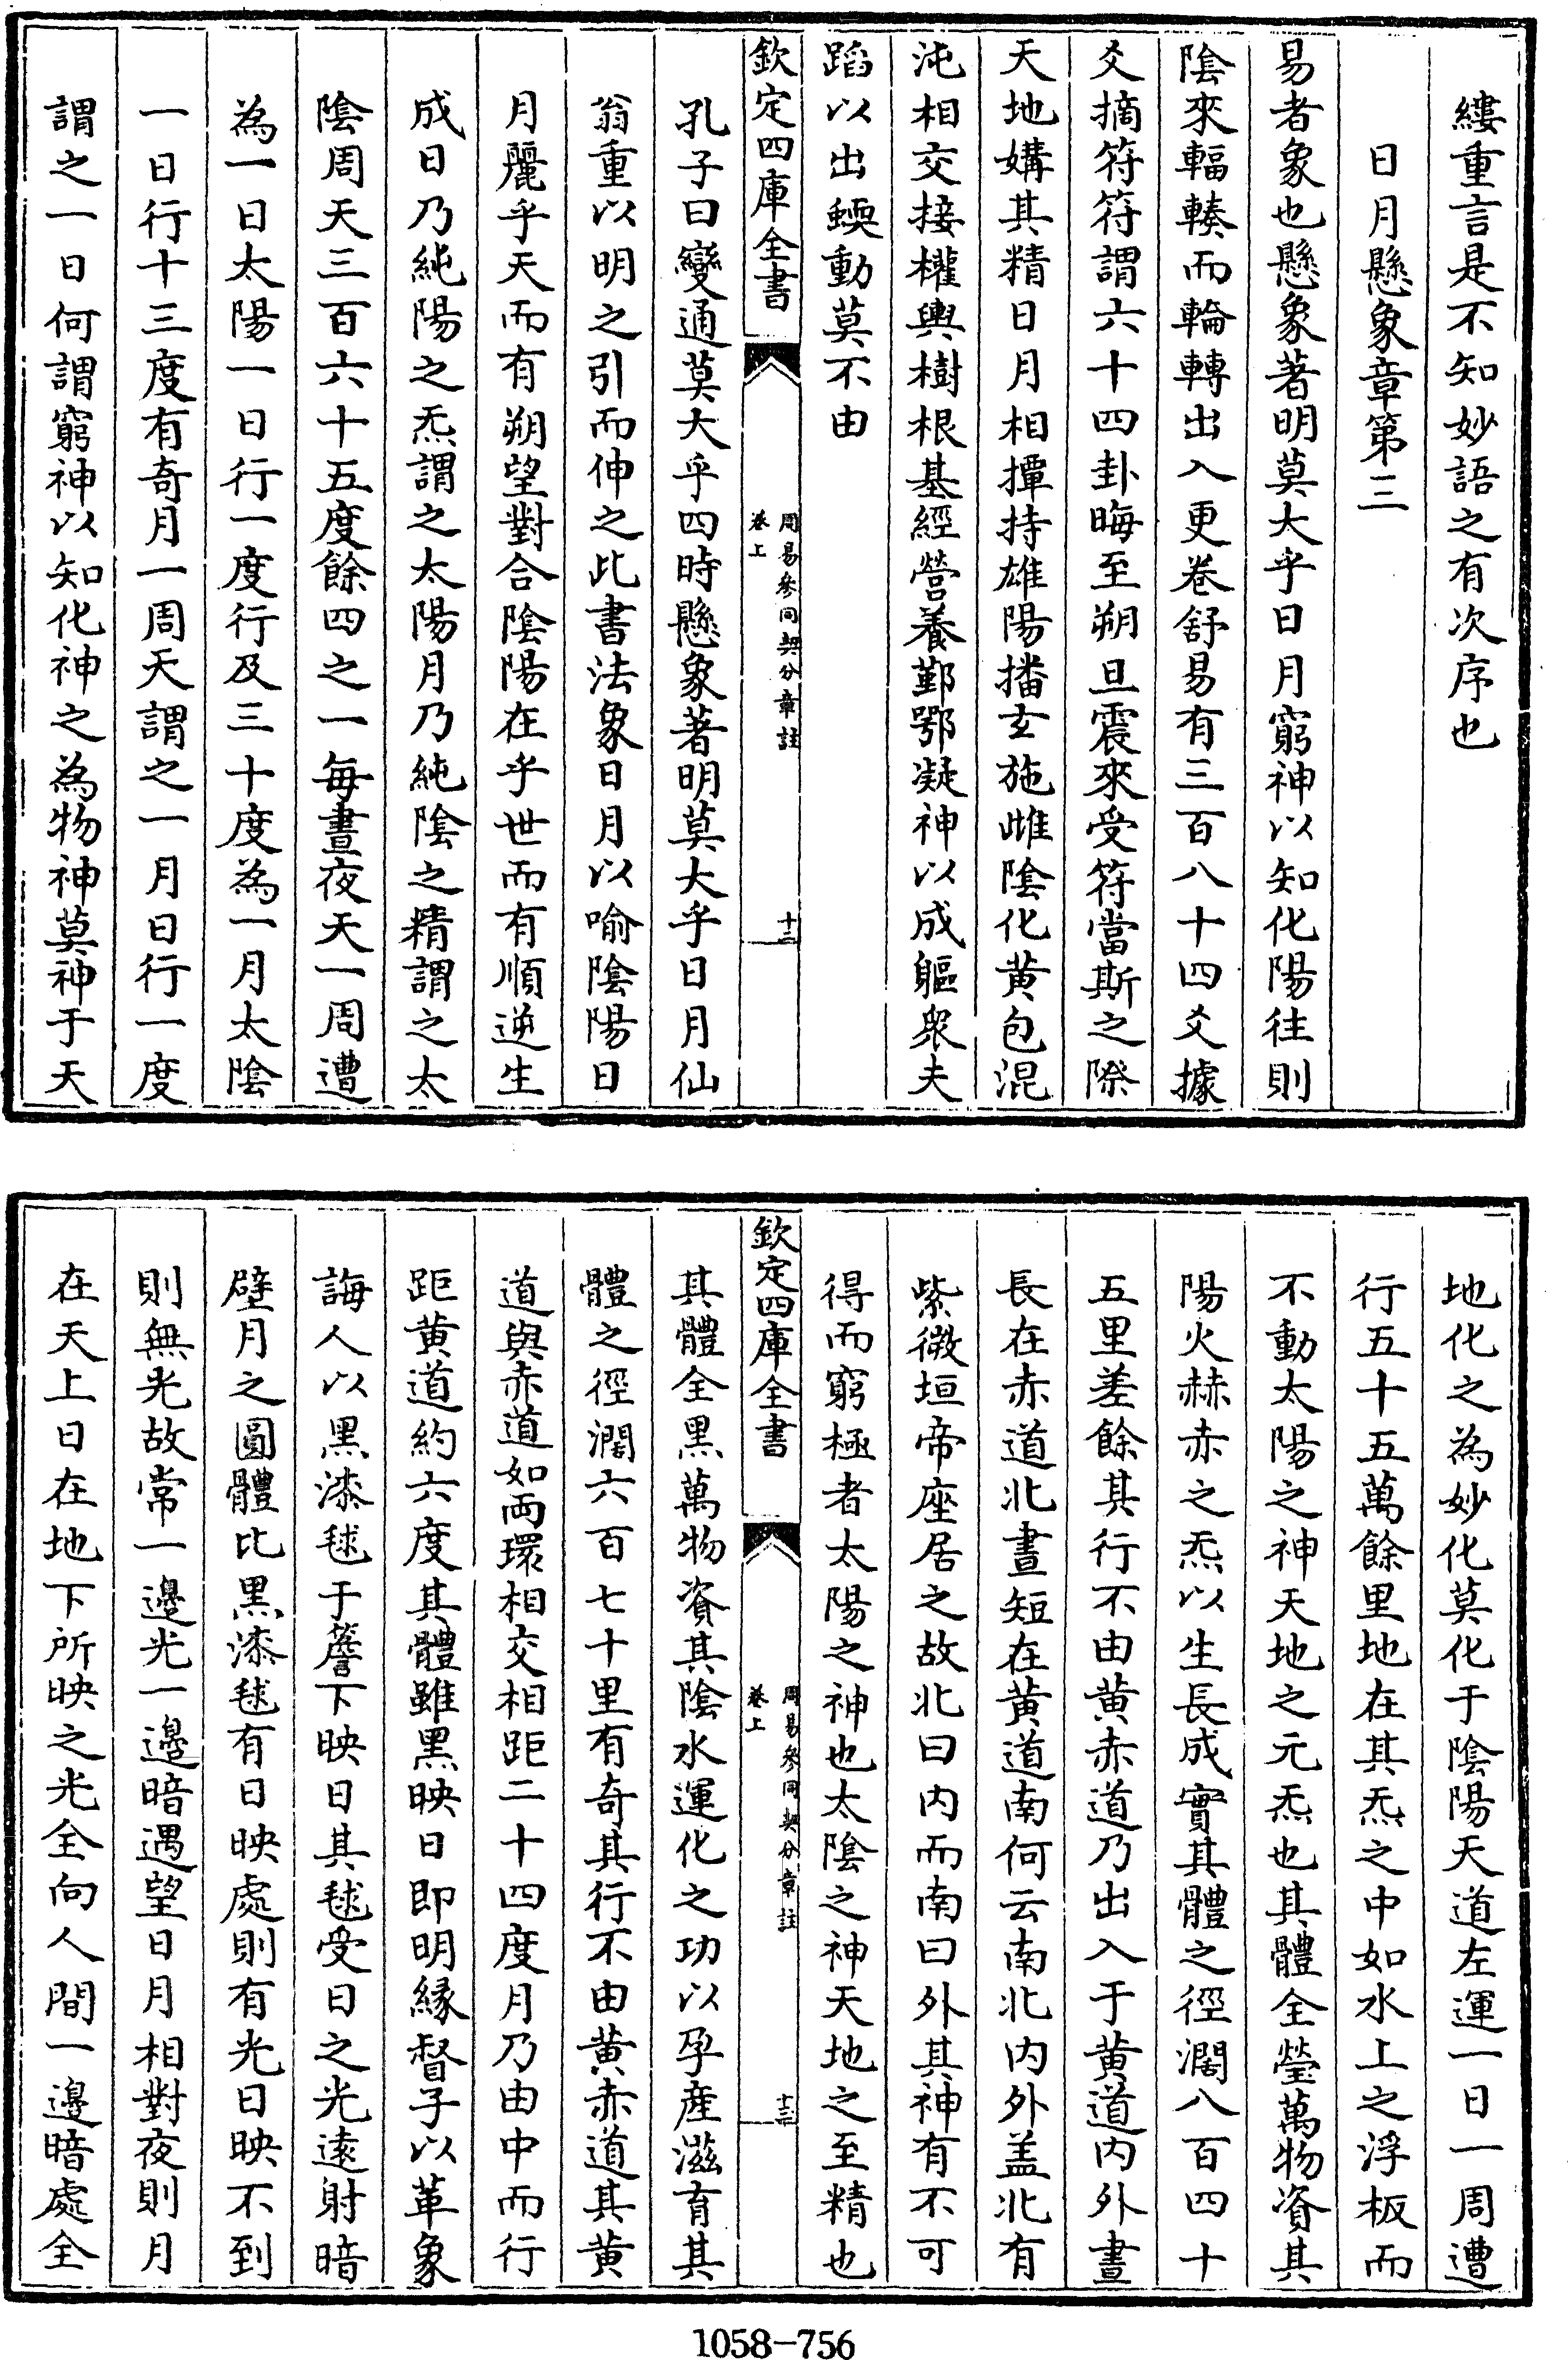 縷重言是不知妙語之有次序也
日月懸象章第三
易者象也懸象著明莫大乎日月窮神以知化陽往則
陰來輻輳而輪轉出入更卷舒易有三百八十四爻據
爻摘符符謂六十四卦晦至朔旦震來受符當斯之際
天地媾其精日月相撢持雄陽播玄施雌陰化黄包混
沌相交接權輿樹根基經營養鄞鄂凝神以成軀衆夫
蹈以出蝡動莫不由
欽定四庫全書
周易參同契分章註
卷上
十二
孔子曰變通莫大乎四時懸象著明莫大乎日月仙
翁重以明之引而伸之此書法象日月以喻陰陽日
月麗乎天而有朔望對合陰陽在乎世而有順逆生
成日乃純陽之炁謂之太陽月乃純陰之精謂之太
陰周天三百六十五度餘四之一每晝夜天一周遭
為一日太陽一日行一度行及三十度為一月太陰
一日行十三度有奇月一周天謂之一月日行一度
謂之一日何謂窮神以知化神之為物神莫神于天
地化之為妙化莫化于陰陽天道左運一日一周遭
行五十五萬餘里地在其炁之中如水上之浮板而
不動太陽之神天地之元炁也其體全瑩萬物資其
陽火赫赤之炁以生長成實其體之徑濶八百四十
五里差餘其行不由黄赤道乃出入于黄道内外晝
長在赤道北晝短在黄道南何云南北内外盖北有
紫微垣帝座居之故北曰内而南曰外其神有不可
得而窮極者太陽之神也太陰之神天地之至精也
欽定四庫全書
周易參同契分章註
卷上
十三
其體全黑萬物資其陰水運化之功以孕產滋育其
體之徑濶六百七十里有奇其行不由黄赤道其黄
道與赤道如兩環相交相距二十四度月乃由中而行
距黄道約六度其體雖黑映日即明緣督子以革象
誨人以黑漆毬于簷下映日其毬受日之光遠射暗
壁月之圓體比黑漆毬有日映處則有光日映不到
則無光故常一邊光一邊暗遇望日月相對夜則月
在天上日在地下所映之光全向人間一邊暗處全
1058-756